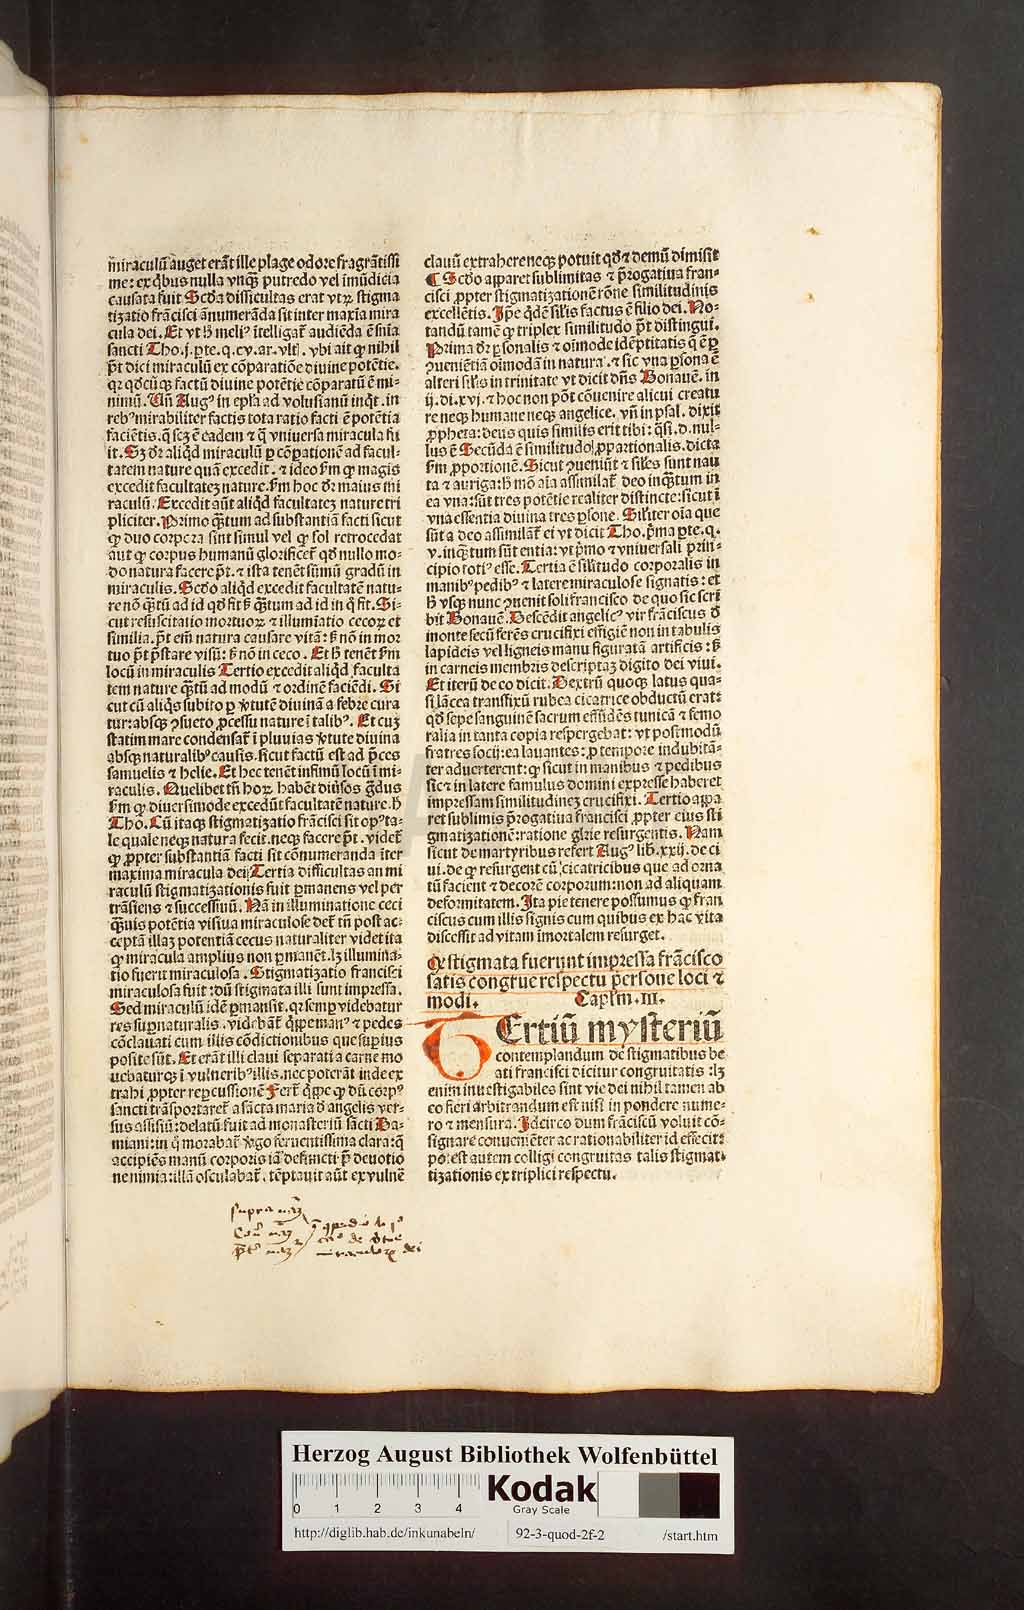 miraculū auget erāt ille plage odore fragrātissi
me: ex qͥbus nulla vnqꝫ putredo vel imūdicia
causata fuit Scd̓a difficultas erat vtꝝ stigma
tizatio frācisci ānumerāda sit inter maxia mira
cula dei. Et vt h̄ meliꝰ ītelligat̄ audiēda ē sn̄ia
sancti Tho.j.p̱te.q.cv.ar.vlt̄. vbi ait ꝙ nihil
pt̄ dici miraculū ex cōparatiōe diuine potētie.
qꝛ qd̓cūqꝫ factū diuine potētie cōparatū ē mi-
nimū. Vn̄ Augꝰ in epl̄a ad volusianū inqͥt. in
rebꝰ mirabiliter factis tota ratio facti ē potētia
faciētis. q̄ scꝫ ē eadem ⁊ q̄ vniuersa miracula fu
it. Sꝫ dr̄ aliqͥd miraculū ꝑ cōꝑationē ad facul-
tatem nature quā excedit. ⁊ ideo ẜm ꝙ magis
excedit facultateꝫ nature. ẜm hoc dr̄ maius mi
raculū. Excedit aūt aliqͥd facultateꝫ nature tri
pliciter. Primo qͣꝫtum ad substantiā facti sicut
ꝙ duo corpora sint simul vel ꝙ sol retrocedat
aut ꝙ corpus humanū glorificet̄ qd̓ nullo mo-
do natura facere pt̄. ⁊ ista tenēt sūmū gradū in
miraculis. Scd̓o aliqͥd excedit facultatē natu-
re nō qͣꝫtū ad id qd̓ fit ẜꝫ qͣꝫtum ad id in q̊ fit. Si-
cut resuscitatio mortuoꝝ ⁊ illumīatio cecoꝝ et
similia. pt̄ em̄ natura causare vitā: ẜꝫ nō in mor
tuo pt̄ p̄stare visū: ẜꝫ nō in ceco. Et h̄ tenēt ẜm
locū in miraculis Tertio excedit aliqͥd faculta
tem nature qͣꝫtū ad modū ⁊ ordinē faciēdi. Si
cut cū aliqͥs subito ꝑ v̓tutē diuinā a febre cura
tur: absqꝫ ꝯsueto ꝓcessu nature ī talibꝰ. Et cuꝫ
statim mare condensat̄ ī pluuias v̓tute diuina
absqꝫ naturalibꝰ causis. sicut factū est ad p̄ces
samuelis ⁊ helie. Et hec tenēt infimū locū ī mi-
raculis. Quelibet tn̄ hoꝝ habēt diu̓sos gͣdus
ẜm ꝙ diuersimode excedūt facultatē nature. h̄
Tho. Cū itaqꝫ stigmatizatio frācisci sit opꝰ ta-
le quale neqꝫ natura fecit. neqꝫ facere pt̄. videt̄
ꝙ ꝓpter substantiā facti sit cōnumeranda īter
maxima miracula dei Tertia difficultas an mi
raculū stigmatizationis fuit ꝑmanens vel per
trāsiens ⁊ successiuū. Nā in illuminatione ceci
qͣꝫuis potētia visiua miraculose det̄ tn̄ post ac-
ceptā illaꝫ potentiā cecus naturaliter videt ita
ꝙ miracula amplius non ꝑmanēt. lꝫ illumina-
tio fuerit miraculosa. Stigmatizatio francisci
miraculosa fuit: dū stigmata illi sunt impressa.
Sed miraculū idē ꝑmansit. qꝛ semꝑ videbatur
res suꝑnaturalis. videbāt̄ qͥppe manꝰ ⁊ pedes
cōclauati cum illis cōdictionibus que suꝑius
posite sūt. Et erāt illi claui separati a carne mo
uebaturqꝫ ī vulneribꝰ illis. nec poterāt inde ex
trahi ꝓpter reꝑcussionē Fert̄ qͥppe ꝙ dū corpꝰ
sancti trāsportaret̄ a sācta maria d̓ angelis ver-
sus assisiū: delatū fuit ad monasteriū sācti Da-
miani: in q̊ morabat̄ v̓go feruentissima clara: q̄
accipiēs manū corporis iā defuncti p̄ deuotio
ne nimia: illā osculabat̄. tēptauit aūt ex vulnē
clauū extrahere neqꝫ potuit qd̓ ⁊ demū dimisit
¶ Scd̓o apparet sublimitas ⁊ p̄rogatiua fran-
cisci ꝓpter stigmatizationē rōne similitudinis
excellētis. Ip̄e qͥdē sil̓is factus ē filio dei. No-
tandū tamē ꝙ triplex similitudo pt̄ distingui.
Prima dr̄ ꝑsonalis ⁊ oīmode idēptitatis q̄ ē ꝑ
ꝯuenietiā oīmodā in natura. ⁊ sic vna ꝑsona ē
alteri sil̓is in trinitate vt dicit dn̄s Bonauē. in
ij.di.xvj. ⁊ hoc non pōt cōuenire alicui creatu
re neqꝫ humane neqꝫ angelice. vn̄ in psal. dixit
ꝓpheta: deus quis similis erit tibi: qͣsi. d. nul-
lus ē Secūda ē similitudo ꝓportionalis. dicta
ẜm ꝓportionē. Sicut ꝯueniūt ⁊ sil̓es sunt nau
ta ⁊ auriga: h̄ mō aīa assimilat̄ deo inqͣꝫtum in
ea vna: sūt tres potētie realiter distincte: sicut ī
vna essentia diuina tres ꝑsone. Sil̓iter oīa que
sūt a deo assimilāt̄ ei vt dicit Tho. pͥma ꝑte. q.
v. inqͣꝫtum sūt entia: vt pͥmo ⁊ vniuersali prin-
cipio totiꝰ esse. Tertia ē sil̓itudo corporalis in
manibꝰ pedibꝰ ⁊ latere miraculose signatis: et
h̄ vsqꝫ nunc ꝯuenit soli francisco de quo sic scri
bit Bonauē. Descēdit angelicꝰ vir frāciscus d̓
monte secū ferēs crucifixi effigiē non in tabulis
lapideis vel ligneis manu figuratā artificis: ẜꝫ
in carneis membris descriptaꝫ digito dei viui.
Et iterū de eo dicit. Dextrū quoqꝫ latus qua-
si lācea transfixū rubea cicatrice obductū erat:
qd̓ sepe sanguinē sacrum effūdēs tunicā ⁊ femo
ralia in tanta copia respergebat: vt postmodū
fratres socij: ea lauantes: ꝓ tempore indubitā-
ter aduerterent: ꝙ sicut in manibus ⁊ pedibus
sic ⁊ in latere famulus domini expresse haberet
impressam similitudineꝫ crucifixi. Tertio appa
ret sublimis p̄rogatiua francisci ꝓpter eius sti
gmatizationē: ratione glīe resurgentis. Nam
sicut de martyribus refert Augꝰ lib̓.xxij. de ci
ui. de ꝙ resurgent cū cicatricibus que ad orna
tū facient ⁊ decorē corporum: non ad aliquam
deformitatem. Ita pie tenere possumus ꝙ fran
ciscus cum illis signis cum quibus ex hac vita
discessit ad vitam īmortalem resurget.
Qꝫ stigmata fuerunt impressa frācisco
satis congrue respectu persone loci ⁊
modi. Capl̓m .III.
TErtiū mysteriū
contemplandum de stigmatibus be
ati francisci dicitur congruitatis: lꝫ
enim inuestigabiles sint vie dei nihil tamen ab
eo fieri arbitrandum est nisi in pondere nume-
ro ⁊ mensura. Idcirco dum frāciscū voluit cō-
signare conueniēter ac rationabiliter id effecit:
potest autem colligi congruitas talis stigmat-
tizationis ex triplici respectu.
supra nāꝫ
Herzog August Bibliothek Wolfenbüttel
0 1 2 3 4
Kodak
Gray Scale
http://diglib.hab.de/inkunabeln/ 92-3-quod-2f-2 /start.htm